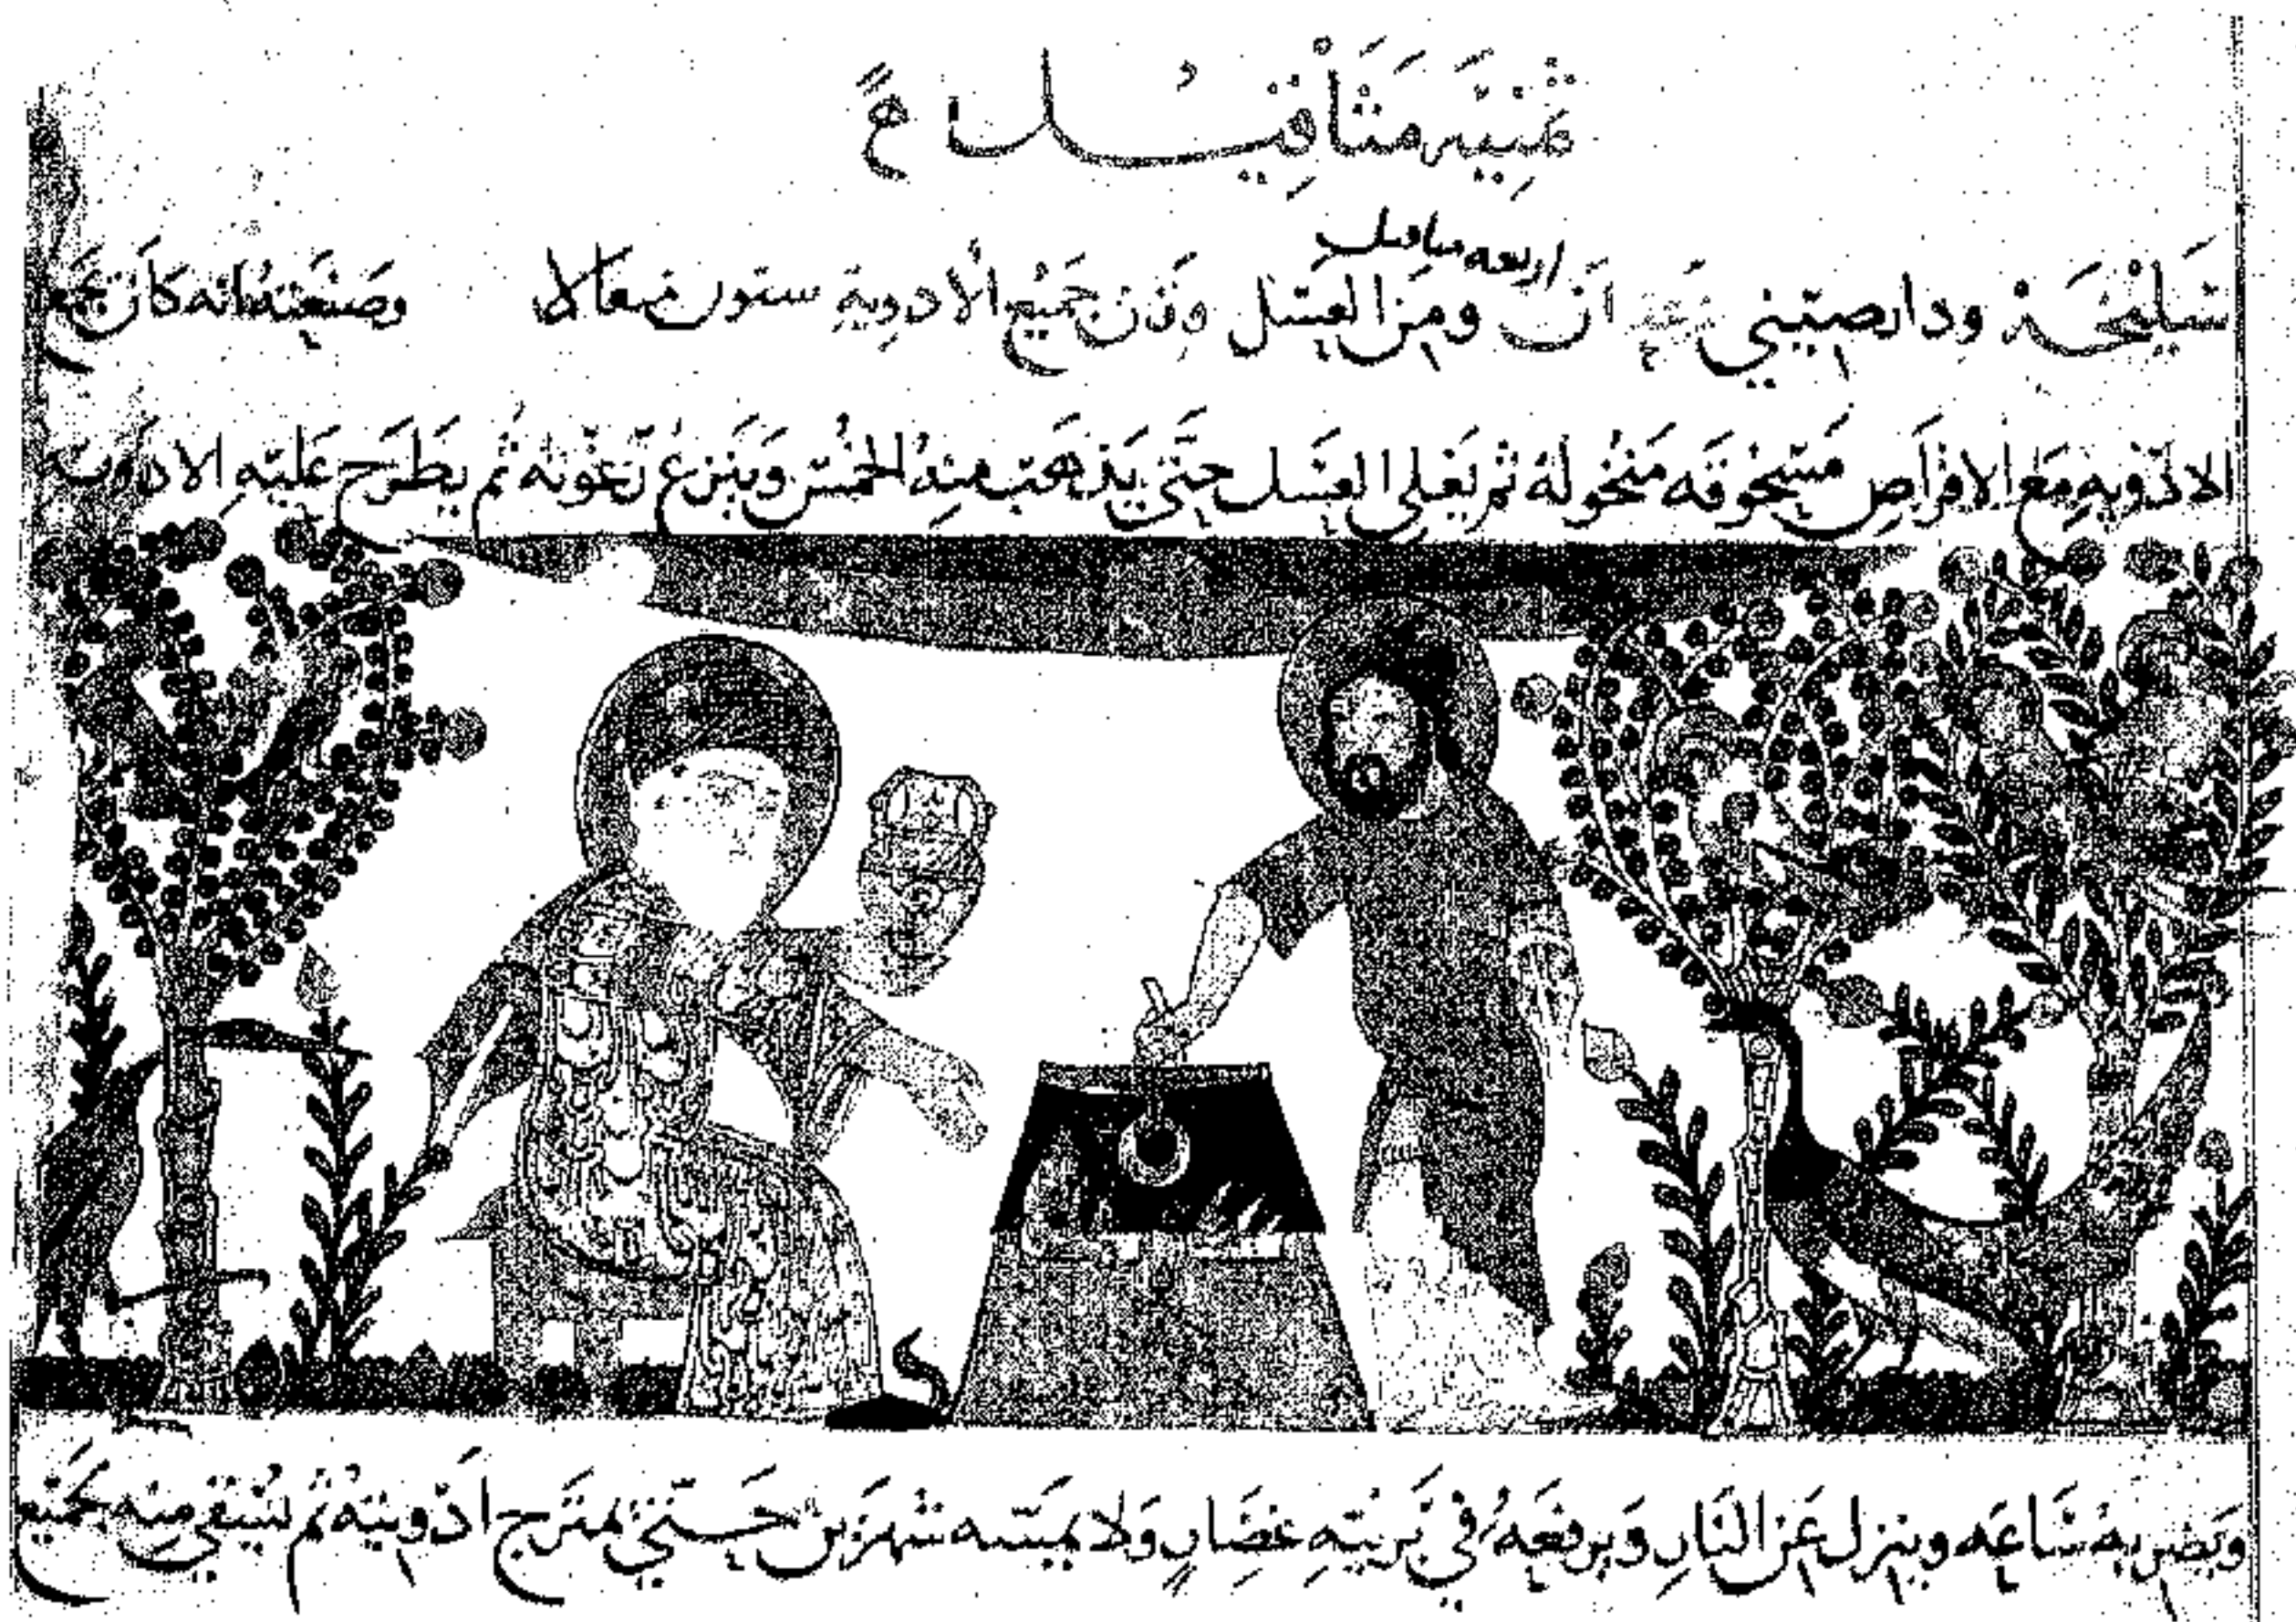 ثمنيه مثاقيل
اربعه مثاقيل
سليخة ودارصيني من العسل وزن جميع الادوية ستون مثقالا وصنعته انه كان يجمع
الادويه مع الاقراص مسحوقه منخوله ثم يغلي العسل حتى يذهب منه الخمس وينزع رغوته ثم يطرح عليه الادويه
ويضربه ساعه وينزل عن النار ويرفعه في برنيته غضار ولا يمسه شهرين حتى يمتزج ادويته ثم يسقي منه بجميع